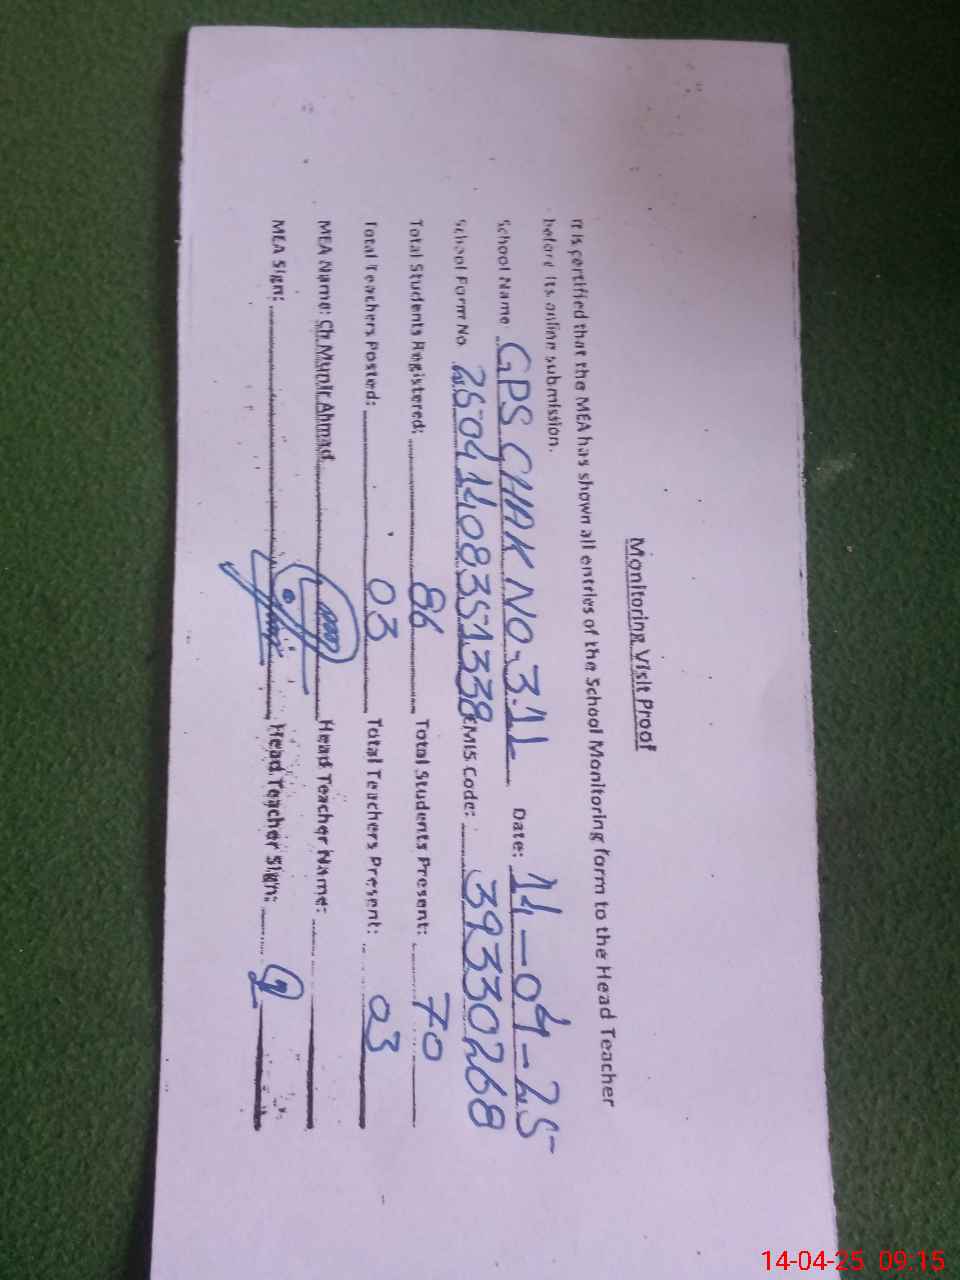 Monitoring Visit Proof
It is certified that the MEA has shown all entries of the School Monitoring form to the Head Teacher
before its online submission.
School Name GPS CHAK NO. 31L Date: 14-04-25
School Form No. 25041408351338 EMIS Code: 39330268
Total Students Registered: 86 Total Students Present: 70
Total Teachers Posted: 03 Total Teachers Present: 03
MEA Name: Ch Munir Ahmad Head Teacher Name:
MEA Sign: Head Teacher Sign:
14-04-25 09:15